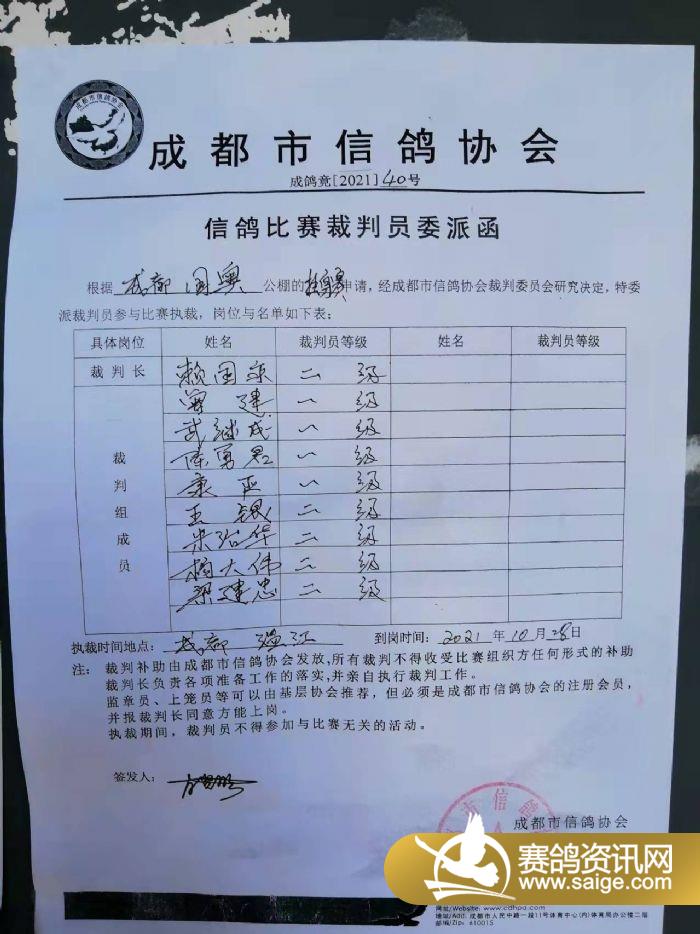 成都市信鸽协会
成都市信鸽协会
成鸽竞[2021]40号
信鸽比赛裁判员委派函
根据 成都 国奥 公棚的 申请，经成都市信鸽协会裁判委员会研究决定，特委
派裁判员参与比赛执裁，岗位与名单如下表：
具体岗位 姓名 裁判员等级 姓名 裁判员等级
裁判长 赖国京 二级
曾建 一级
武继成 一级
陈勇君 一级
裁判组成员 康 一级
王银 二级
宋治华 二级
杨大伟 二级
梁建忠 二级
执裁时间地点：成都 温江 到岗时间：2021年10月28日
注：裁判补助由成都市信鸽协会发放，所有裁判不得收受比赛组织方任何形式的补助
裁判长负责各项准备工作的落实，并亲自执行裁判工作。
监章员、上笼员等可以由基层协会推荐，但必须是成都市信鸽协会的注册会员，
并报裁判长同意方能上岗。
执裁期间，裁判员不得参加与比赛无关的活动。
签发人：
市信鸽
成都市信鸽协会
赛鸽资讯网
www.saige.com
网址/Website: www.cdhpa.com
地址/Add: 成都市人民中路一段11号体育中心(内)体育局办公楼二层
邮编/Zip: 610015